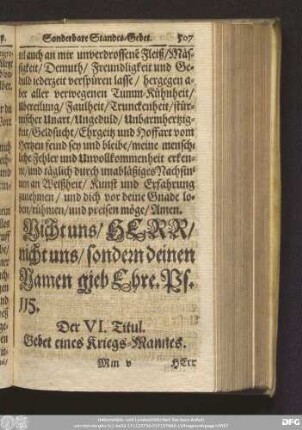 Sonderbare Standes-Gebet. 507
til auch an mir unverdrossene Fleiß/Mäs-
sigkeit/ Demuth/ Freundligkeit und Ge-
duld iederzeit verspüren lasse/ hergegen a-
ber aller verwegenen Tumm-Kühnheit/
übereilung/ Faulheit/ Trunckenheit/ stür-
mischer Unart/Ungeduld/ Unbarmhertzig-
keit/ Geldsucht/ Ehrgeitz und Hoffart vom
Hertzen feind sey und bleibe/ meine mensch-
liche Fehler und Unvollkommenheit erken-
ne/ und täglich durch unabläßiges Nachsin-
nen an Weißheit/ Kunst und Erfahrung
zunehmen/ und dich vor deine Gnade lo-
ben/rühmen/ und preisen möge/ Amen.
Nicht uns/ HERR/
nicht uns/ sondern deinen
Namen gieb Ehre. Ps.
115.
Der VI. Titul.
Gebet eines Kriegs-Mannes.
Mm v HErr